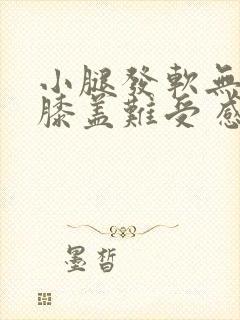 小腿發軟無
膝蓋難受感
墨皙